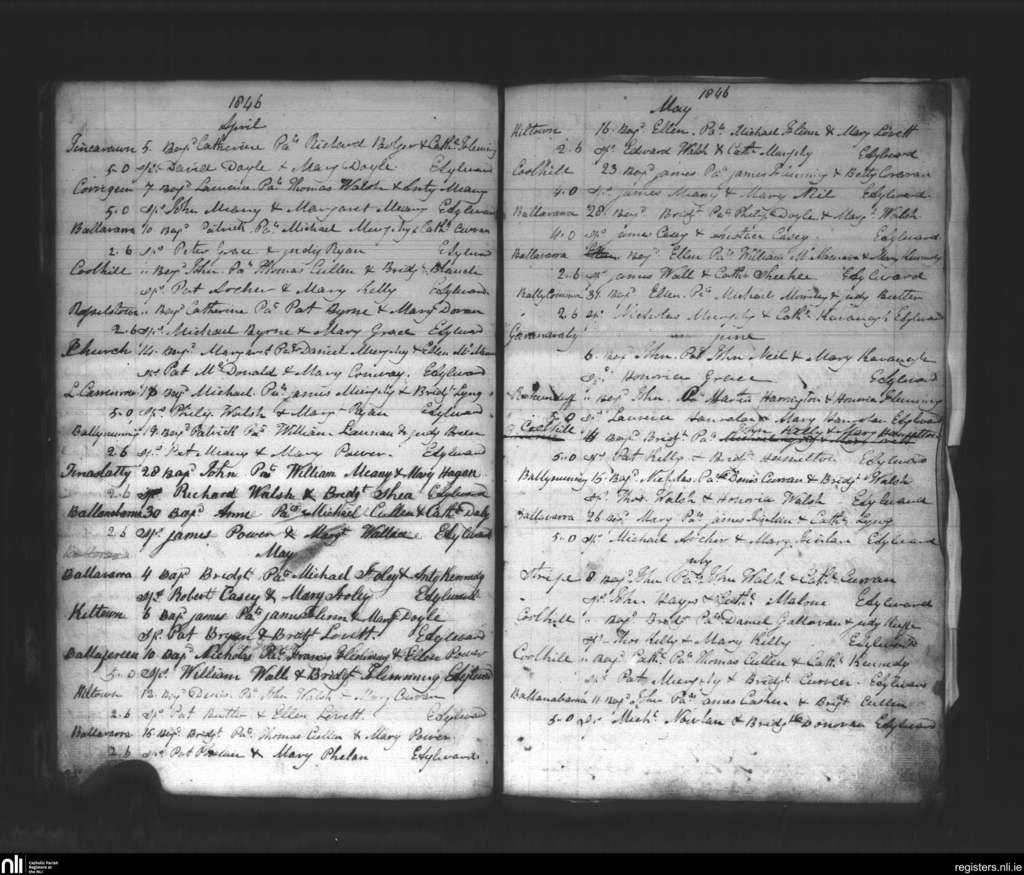 1846
April
Tincarawn 5. Bapd. Catherine Pa. Richard Bolger & Cathe. Fleming
5.0 Sps. David Doyle & Mary Doyle Edylward
7 Bapd. Laurence Pa. Thomas Walsh & Anty Meany
5.0 Sps. John Meany & Margaret Meany Edylward
Ballavarra 10 Bapd. Patrick Pa. Michael Murphy & Cathe. Curran
2.6 Sps. Peter Grace & judy Ryan Edylward
Coolhill " Bapd. John Pa. Thomas Cullen & Bridgt.
Sps. Pat Archer & Mary Kelly Edylward
" Bapd. Catherine Pa. Pat Byrne & Mary Doran
2.6 Sps. Michael Byrne & Mary Grace Edylward
Church 14. Bapd. Margaret Pa. Daniel Murphy & Ellen
Sps. Pat McDonald & Mary Conway. Edylward
Bapd. Michael Pa. james Murphy & Bridgt. Lyng
5.0 Sps. Philip Walsh & Mary Ryan Edylward
Bapd. Patrick Pa. William & judy Breen
2.6 Sps. Pat Meany & Mary Power. Edylward
28 Bapd. John Pa. William Meany & Mary Hagan
2.6 Sps. Richard Walsh & Bridgt. Shea Edylward
Ballanabarna 30 Bapd. Anne Pa. Michael Cullen & Cathe. Daly
2.6 Sps. james Power & Margt. Wallace Edylward
May
Ballavarra 4 Bapd. Bridgt. Pa. Michael Foley & Anty Kennedy
Sps. Robert Casey & Mary Foley Edylward
Kiltown 6 Bapd. james Pa. james & Margt. Doyle
Sps. Pat Bryan & Bridgt. Lovett. Edylward
10 Bapd. Nicholas Pa. Francis Flemming & Ellen Power
5.0 Sps. William Wall & Bridgt. Flemming Edylward
Kiltown 12 Bapd. Denis Pa. John Walsh & Mary Curran
2.6 Sps. Pat Butler & Ellen Lovett. Edylward
Ballavarra 15 Bapd. Bridgt. Pa. Thomas Cullen & Mary Power.
2.6 Sps. Pat Phelan & Mary Phelan Edylward.
1846
May
Kiltown 16. Bapd. Ellen. Pa. Michael & Mary Lovett
2.6 Sps. Edward Walsh & Cathe. Murphy Edylward
Coolhill 23 Bapd. james Pa. james Flemming & Betty Corcoran
4.0 Sps. james Meany & Mary Neil Edylward
Ballavarra 28 Bapd. Bridgt. Pa. Philip Doyle & Margt. Walsh
4.0 Sps. james Casey & Casey Edylward
Ballavarra Bapd. Ellen Pa. William McNamara & Mary Kennedy
2.6 Sps. james Wall & Cathe. Sheehee Edylward
31. Bapd. Ellen. Pa. Michael & judy Butler
2.6 Sps. Nicholas Murphy & Cathe. Kavanagh Edylward
june
6. Bapd. John. Pa. John Neil & Mary Kavanagh
Sps. Honoria Grace Edylward
" Bapd. John. Pa. Martin Harrington & Honoria Flemming
5.0 Sps. Laurence Hanrahan & Mary Hanrahan Edylward
Coolhill 14 Bapd. Bridgt. Pa. John Kelly & Mary Hamilton
5.0 Sps. Pat Kelly & Bridgt. Hamilton Edylward
15 Bapd. Nicholas Pa. Denis Curran & Bridgt. Walsh
Sps. Thos. Walsh & Honoria Walsh Edylward
Ballavarra 26 Bapd. Mary Pa. james & Cathe. Lyng
5.0 Sps. Michael Archer & Mary Edylward
july
Stripe 8 Bapd. John Pa. John Walsh & Cathe. Curran
Sps. John Hayes & Cathe. Malone Edylward
Coolhill " Bapd. Bridgt. Pa. Daniel Gallavan & judy
Sps. Thos Kelly & Mary Kelly Edylward
Coolhill " Bapd. Pa. Thomas Cullen & Cathe. Kennedy
Sps. Pat Murphy & Bridgt. Curren Edylward
Ballanabarna 11 Bapd. John Pa. james & Bridgt. Cullen
5.0 Sps. Michl. Nowlan & Bridgt. Donovan Edylward
nli Catholic Parish Registers at the NLI
registers.nli.ie